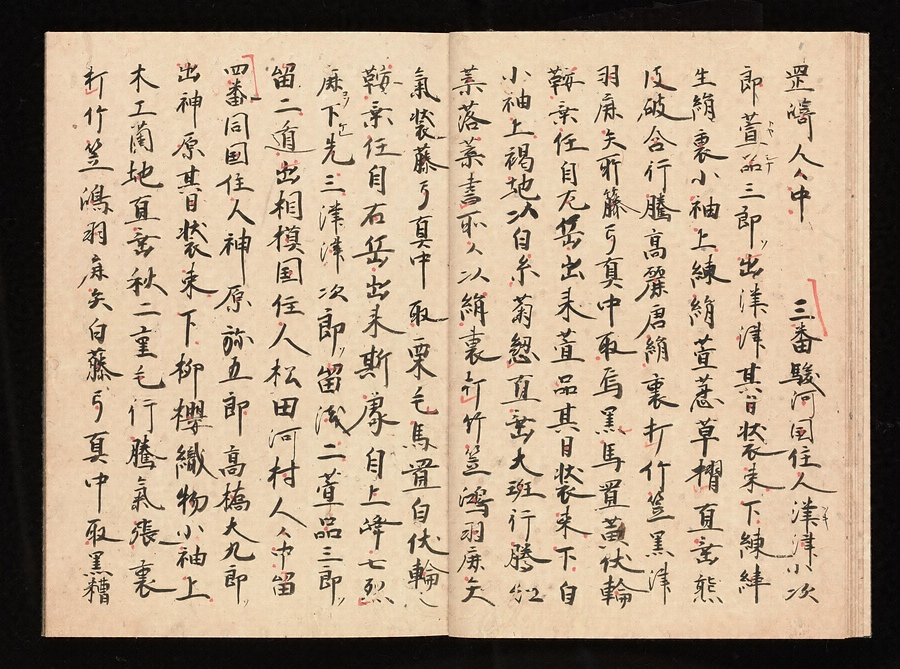 罡崎人〻中　三番駿河国住人津〻津小次
郎萱品三郎出津〻津其日装束下練緯
生絹裏小袖上練絹萱葱草摺直垂熊
皮破合行騰高麗唐絹裏打竹笠黒津
羽麻矢所籐弓真中取烏黒馬置黄伏輪
鞍乗任自左岳出来萱品其日装束下白
小袖上褐地以白糸菊惣直垂大斑行騰
葉落葉書所〻以絹裏打竹笠鴻羽麻矢
氣装藤弓真中取栗毛馬置白伏輪
鞍乗任自右岳出来斯處自上峰七烈
麻下先三津〻津次郎留浅二萱品三郎
留二道出相模国住人松田河村人〻中留
四番同国住人神原弥五郎高橋大九郎
出神原其日装束下柳櫻織物小袖上
木工蘭地直垂秋二重毛行騰氣張裏
打竹笠鴻羽麻矢白藤弓真中取黒糟